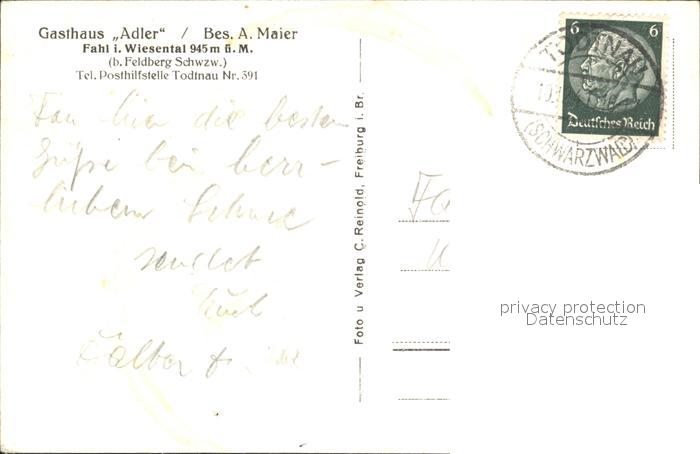 Gasthaus „Adler“ / Bes. A. Maier
Fahl i. Wiesental 945 m ü. M.
(b. Feldberg Schwzw.)
Tel. Posthilfstelle Todtnau Nr. 391
hier die besten
Grüße bei herr-
lichem Schnee
sendet
Euch
Foto u Verlag C. Reinold, Freiburg i. Br.
TODTNAU
(SCHWARZWALD)
6 6
Deutsches Reich
privacy protection
Datenschutz